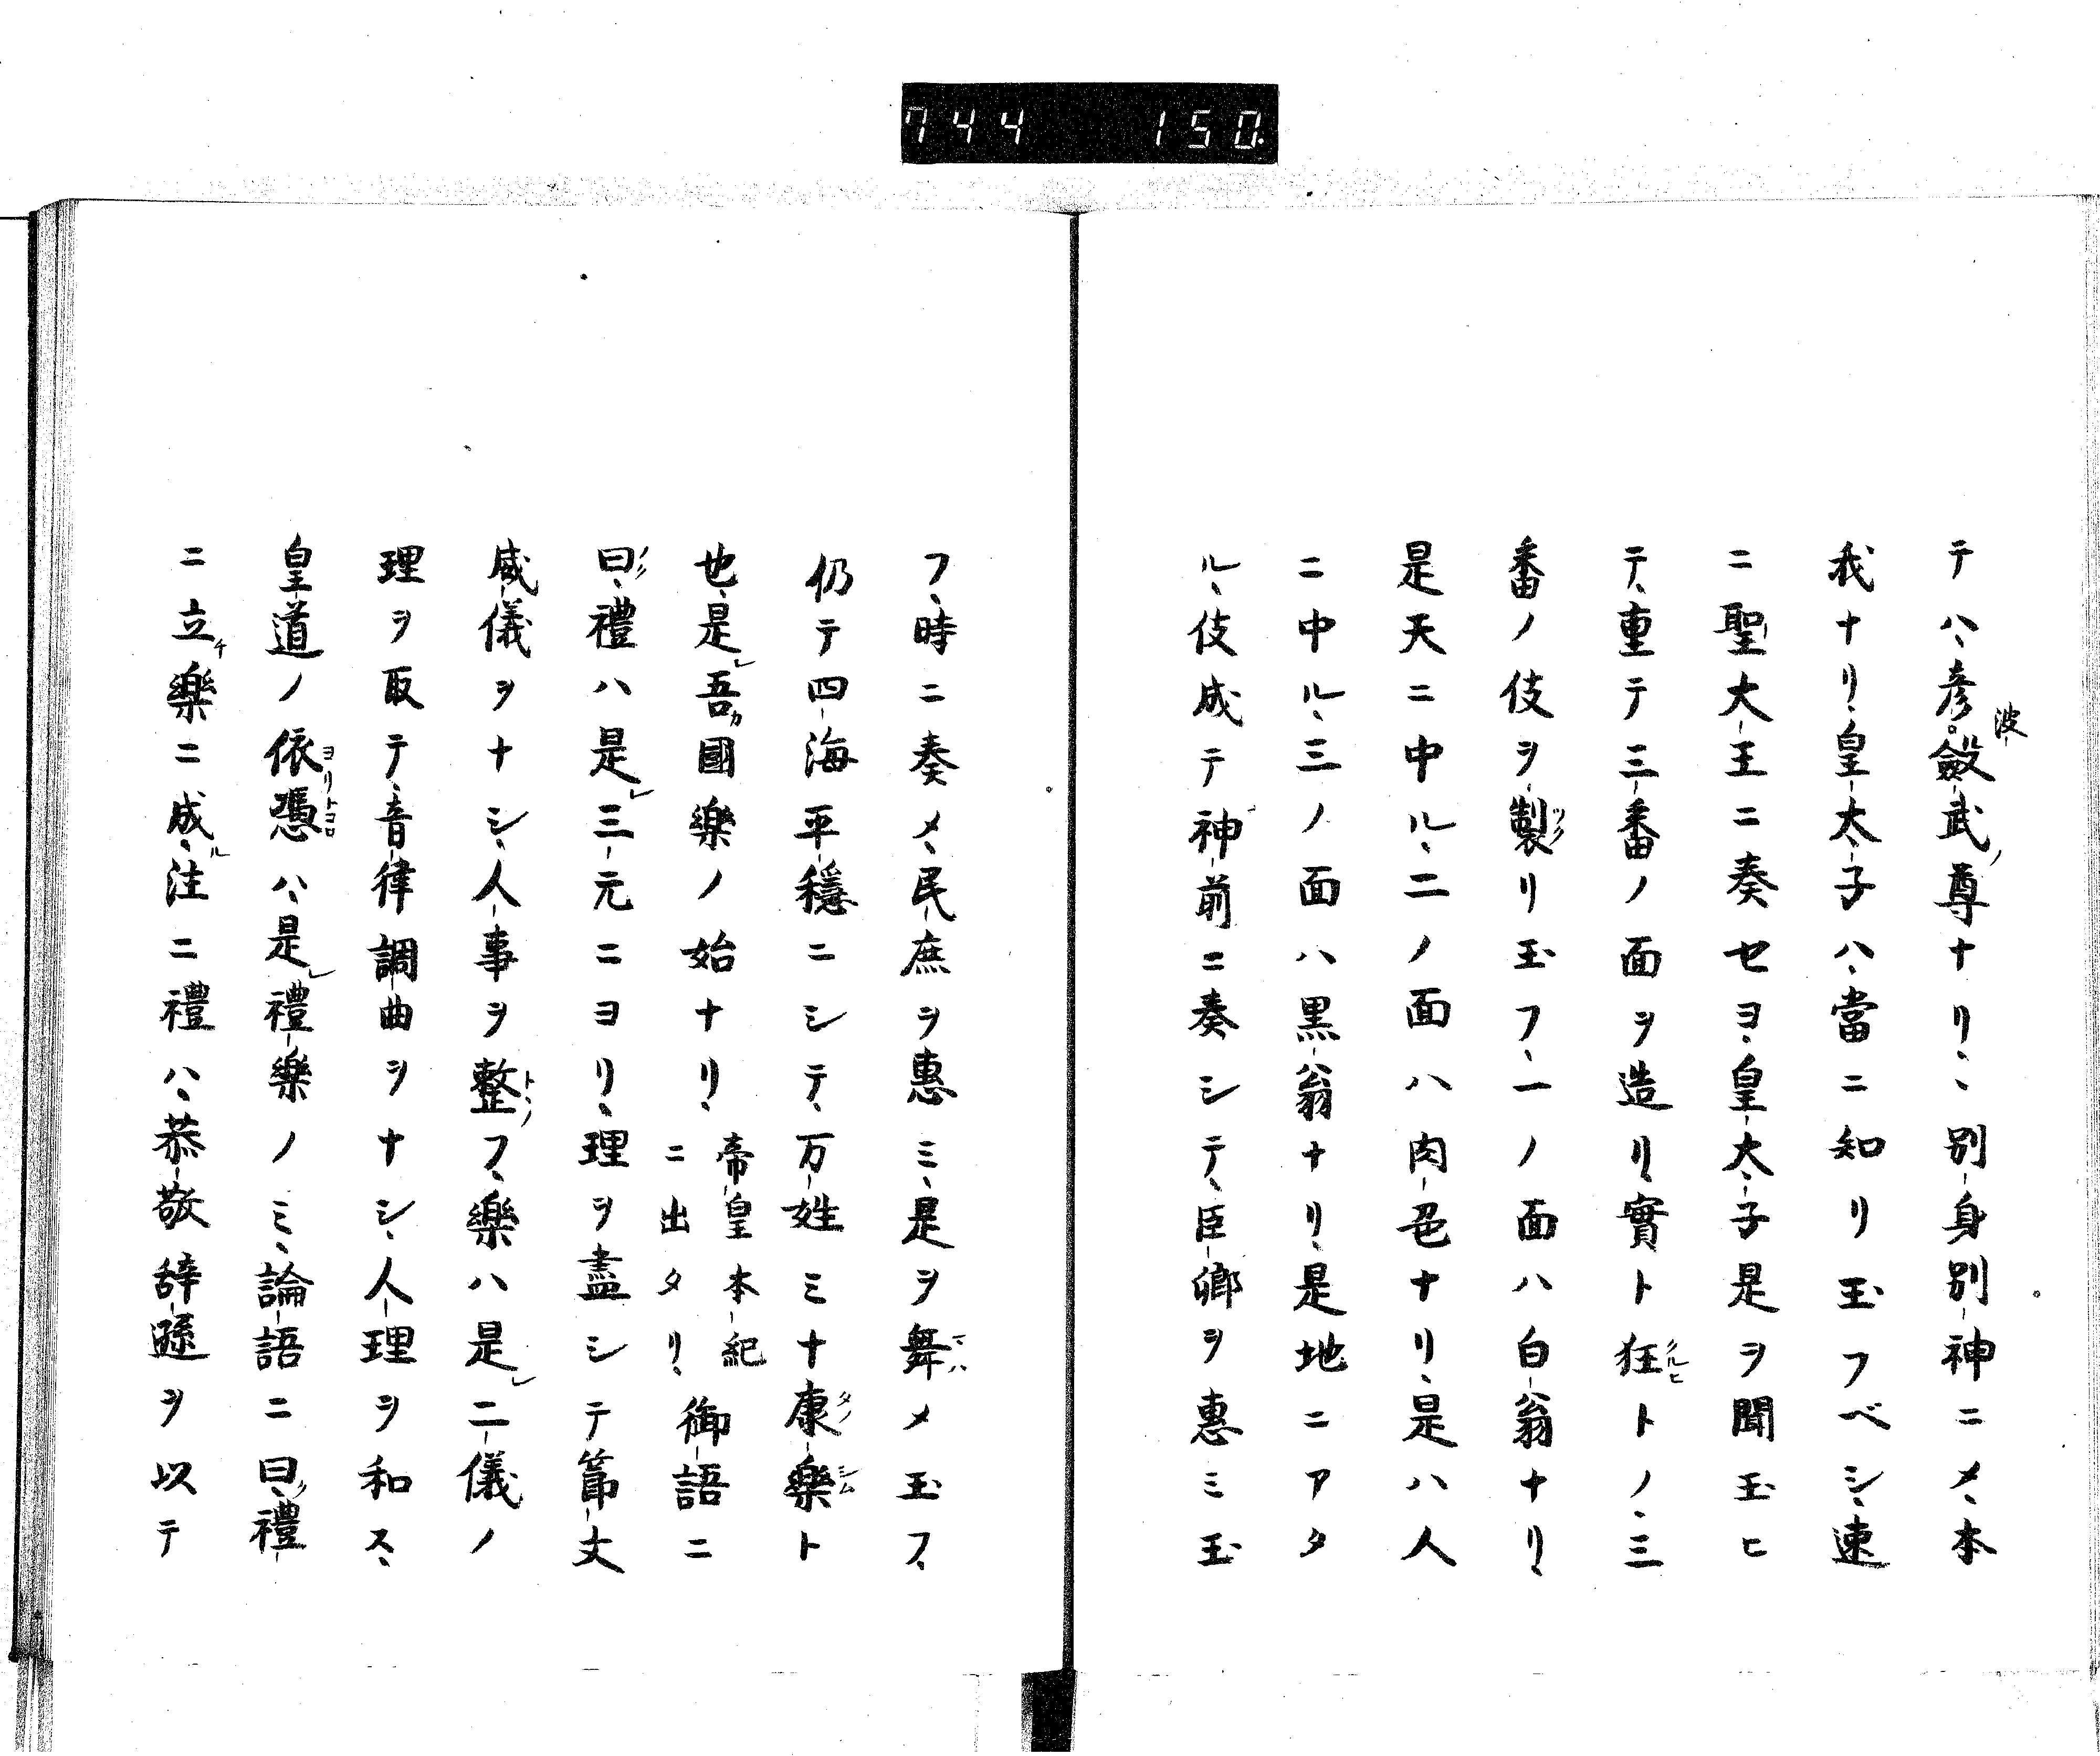 744 150.
テハ、彦。瀲武ノ尊ナリ、別身別神ニメ、本
波
我ナリ、皇太子ハ、當ニ知リ玉フベシ、速
ニ聖大王ニ奏セヨ、皇太子是ヲ聞玉ヒ
テ、重テ三番ノ面ヲ造リ、實ト狂クルヒトノ、三
番ノ伎ヲ製ツクリ玉フ、一ノ面ハ白翁ナリ、
是天ニ中ル、二ノ面ハ肉色ナリ、是ハ人
ニ中ル、三ノ面ハ黒翁ナリ、是地ニアタ
ル、伎成テ神前ニ奏シテ、臣卿ヲ惠ミ玉
フ、時ニ奏メ、民庶ヲ惠ミ、是ヲ舞マハメ玉フ、
仍テ四海平穩ニシテ、万姓ミナ康樂タノシムト
也、是レ吾カ國樂ノ始ナリ、帝皇本紀ニ出タリ、御語ニ
曰ノ、禮ハ是レ三元ニヨリ、理ヲ盡シテ節文
威儀ヲナシ、人事ヲ整トヽノフ、樂ハ是レ二儀ノ
理ヲ取テ、音律調曲ヲナシ、人理ヲ和ス、
皇道ノ依憑ヨリトコロハ、是レ禮樂ノミ、論語ニ曰ノ、禮
ニ立チ樂ニ成ル、注ニ禮ハ、恭敬辞遜ヲ以テ